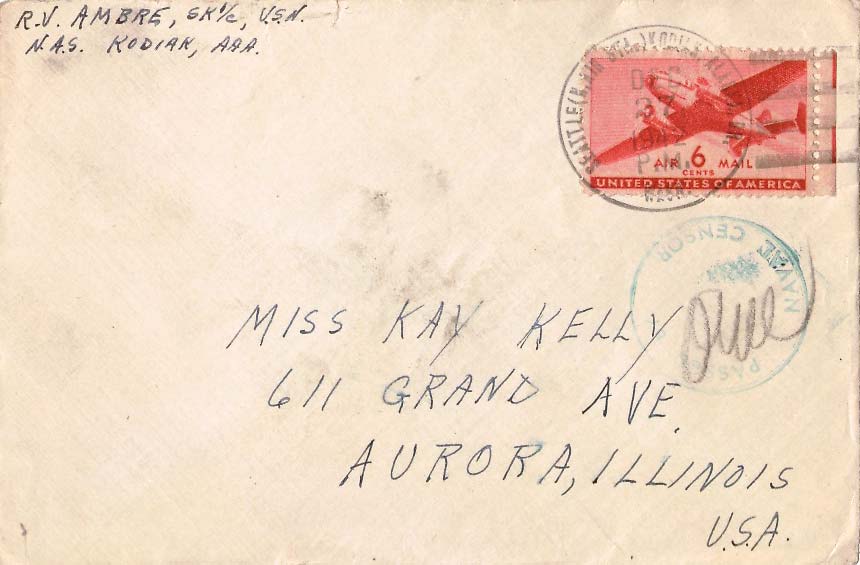 R.V. AMBRE, SK1/c, U.S.N.
N.A.S. KODIAK, AAA.
SEATTLE
DEC
27
1942
P.M.
WASH.
AIR 6 MAIL
CENTS
UNITED STATES OF AMERICA
NAVAL CENSOR
PASS
MISS KAY KELLY
611 GRAND AVE.
AURORA, ILLINOIS
U.S.A.